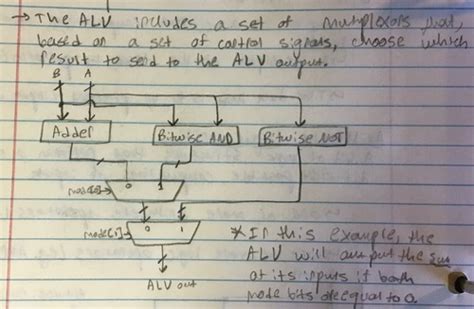 → The ALU includes a set of multiplexors that,
based on a set of control signals, choose which
result to send to the ALU output.
B A
Adder
Bitwise AND
Bitwise NOT
mode[0]→ 0 1
mode[1]→ 0 1
ALU out
* In this example, the
ALU will output the sum
of its inputs if both
mode bits are equal to 0.